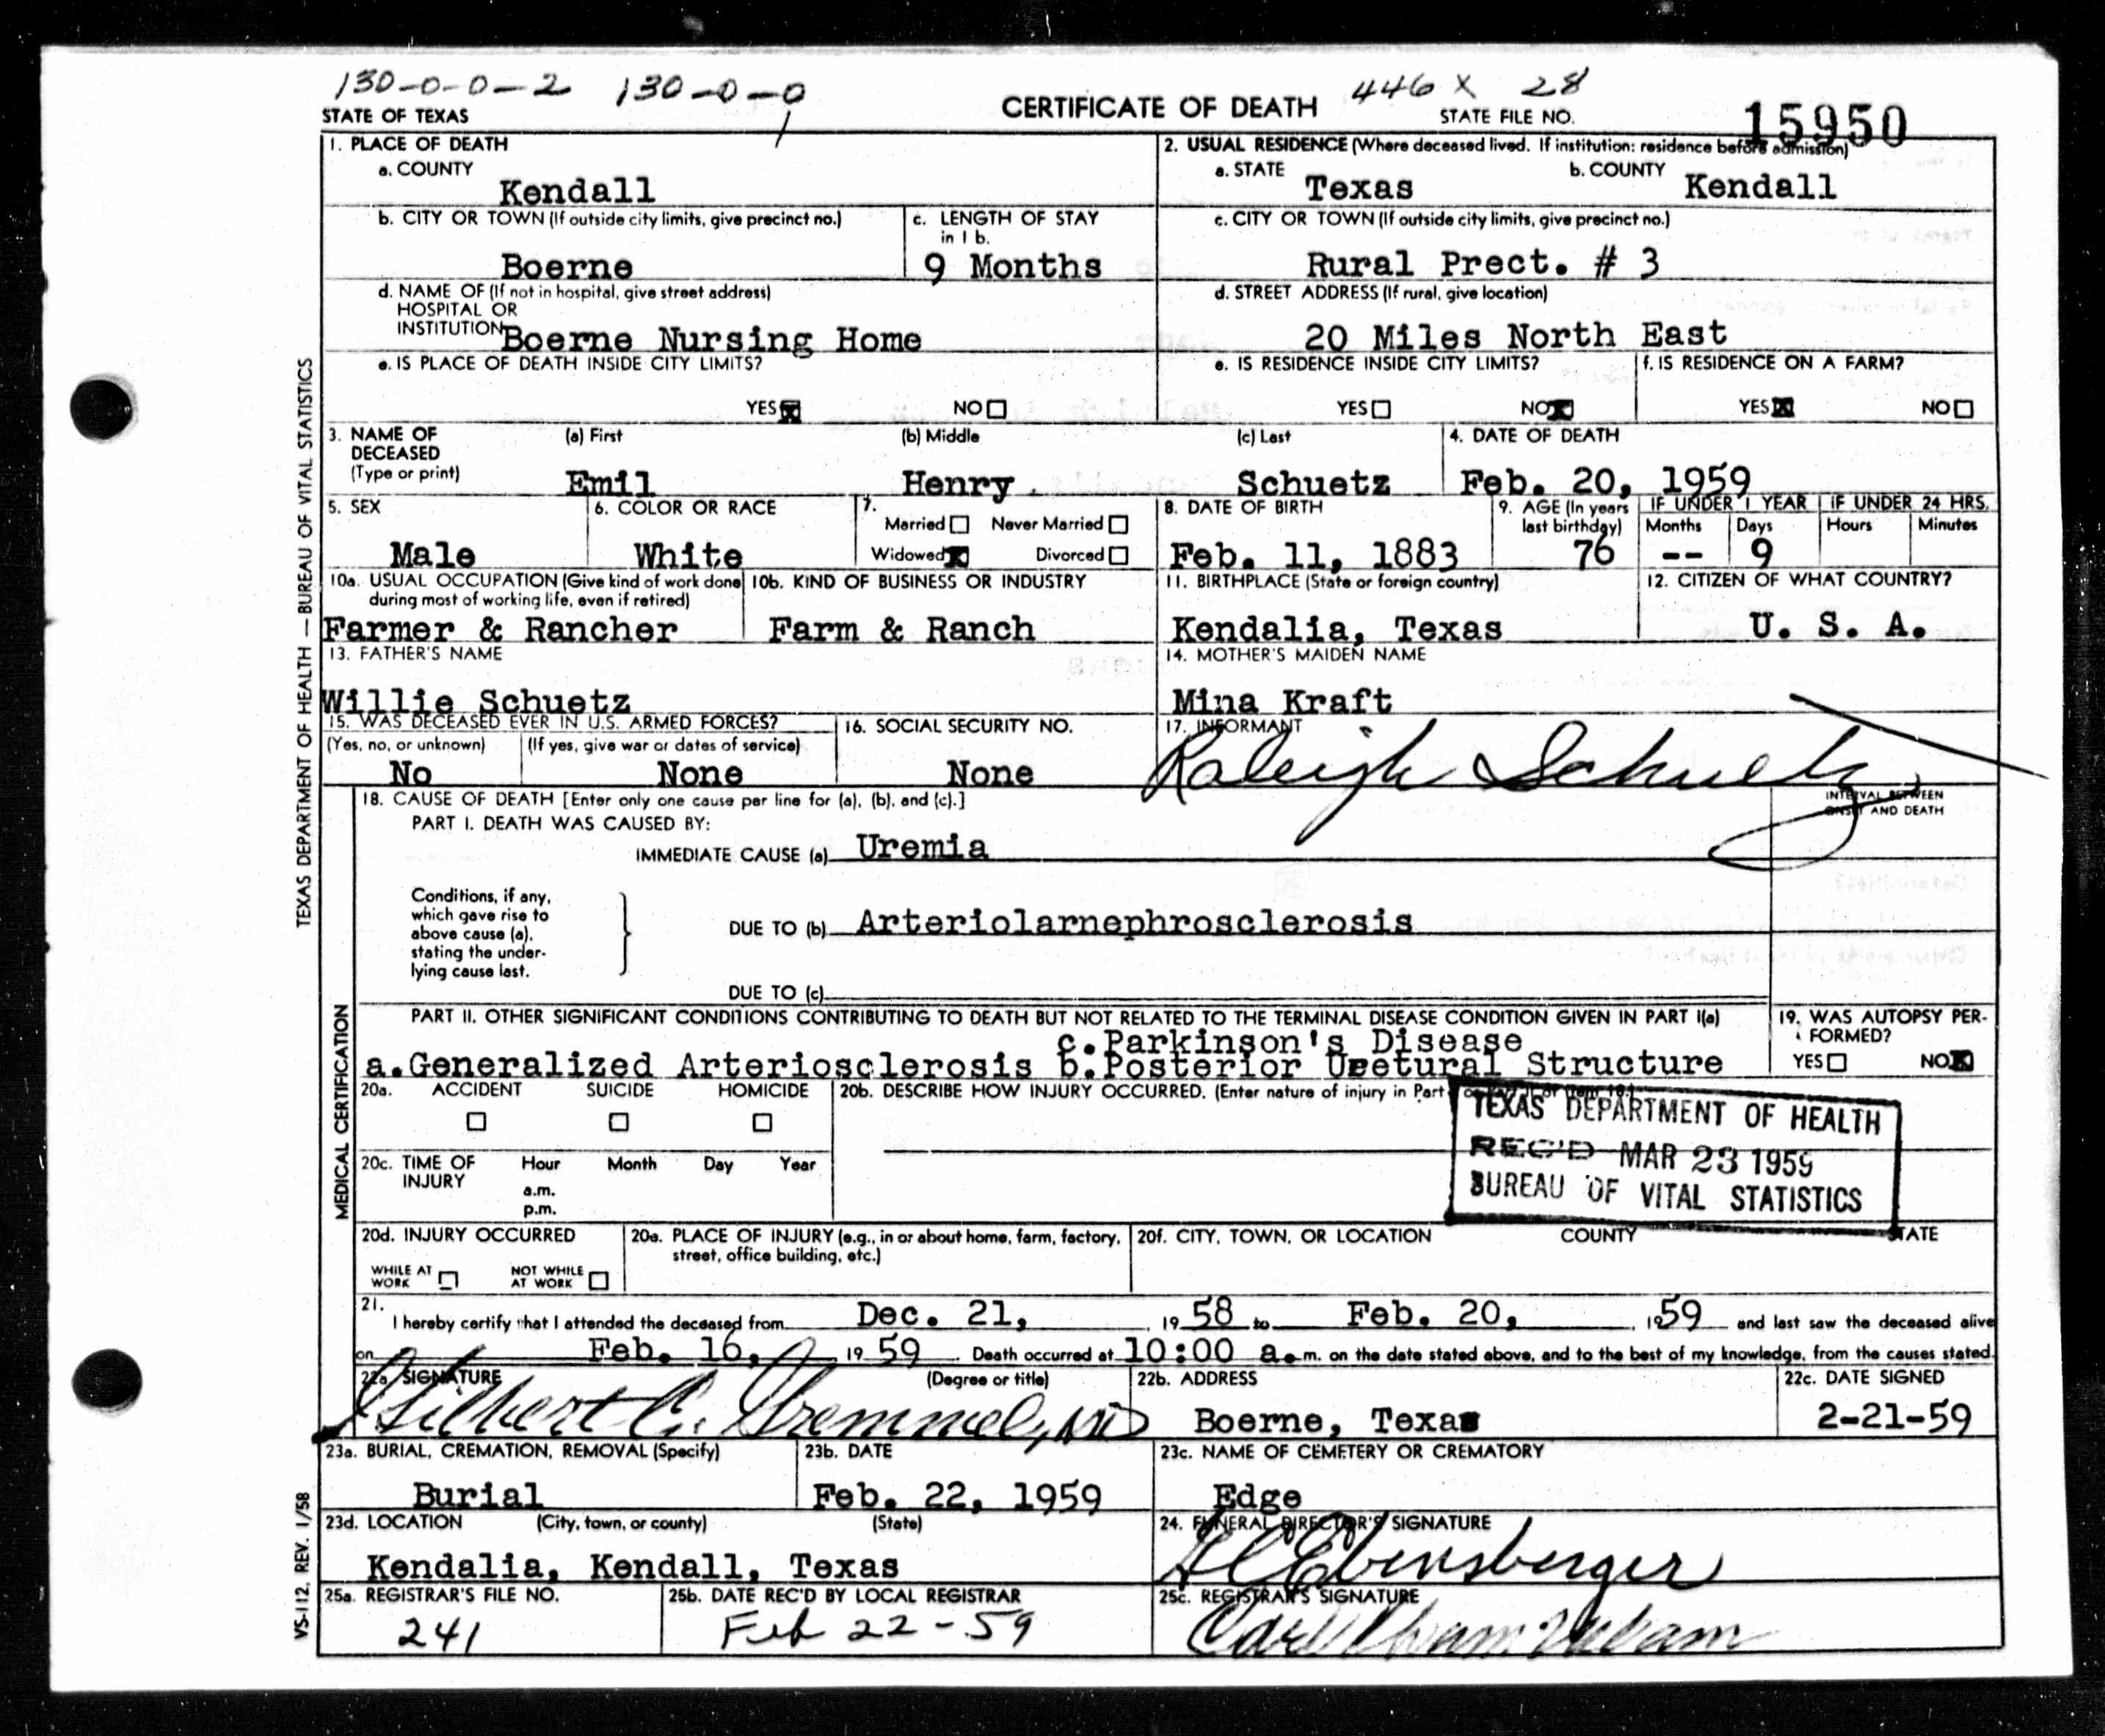 130-0-0-2 130-0-0 446 X 28
1
STATE OF TEXAS CERTIFICATE OF DEATH STATE FILE NO. 15950
1. PLACE OF DEATH
a. COUNTY
Kendall
2. USUAL RESIDENCE (Where deceased lived. If institution: residence before admission)
a. STATE Texas b. COUNTY Kendall
b. CITY OR TOWN (If outside city limits, give precinct no.)
Boerne
c. LENGTH OF STAY
in 1 b.
9 Months
c. CITY OR TOWN (If outside city limits, give precinct no.)
Rural Prect. # 3
d. NAME OF (If not in hospital, give street address)
HOSPITAL OR
INSTITUTION Boerne Nursing Home
d. STREET ADDRESS (If rural, give location)
20 Miles North East
e. IS PLACE OF DEATH INSIDE CITY LIMITS?
YES NO
e. IS RESIDENCE INSIDE CITY LIMITS?
YES NO
f. IS RESIDENCE ON A FARM?
YES NO
3. NAME OF
DECEASED
(Type or print)
(a) First
Emil
(b) Middle
Henry
(c) Last
Schuetz
4. DATE OF DEATH
Feb. 20, 1959
5. SEX
Male
6. COLOR OR RACE
White
7.
Married Never Married
Widowed Divorced
8. DATE OF BIRTH
Feb. 11, 1883
9. AGE (In years
last birthday)
76
IF UNDER 1 YEAR
Months Days
-- 9
IF UNDER 24 HRS.
Hours Minutes
10a. USUAL OCCUPATION (Give kind of work done
during most of working life, even if retired)
Farmer & Rancher
10b. KIND OF BUSINESS OR INDUSTRY
Farm & Ranch
11. BIRTHPLACE (State or foreign country)
Kendalia, Texas
12. CITIZEN OF WHAT COUNTRY?
U. S. A.
13. FATHER'S NAME
Willie Schuetz
14. MOTHER'S MAIDEN NAME
Mina Kraft
15. WAS DECEASED EVER IN U.S. ARMED FORCES?
(Yes, no, or unknown) (If yes, give war or dates of service)
No None
16. SOCIAL SECURITY NO.
None
17. INFORMANT
Raleigh Schuetz
18. CAUSE OF DEATH [Enter only one cause per line for (a), (b), and (c).]
INTERVAL BETWEEN
ONSET AND DEATH
PART I. DEATH WAS CAUSED BY:
IMMEDIATE CAUSE (a) Uremia
Conditions, if any,
which gave rise to
above cause (a),
stating the under-
lying cause last.
DUE TO (b) Arteriolarnephrosclerosis
DUE TO (c)
PART II. OTHER SIGNIFICANT CONDITIONS CONTRIBUTING TO DEATH BUT NOT RELATED TO THE TERMINAL DISEASE CONDITION GIVEN IN PART I(a)
c.Parkinson's Disease
a.Generalized Arteriosclerosis b.Posterior Uretural Structure
19. WAS AUTOPSY PER-
FORMED?
YES NO
20a. ACCIDENT SUICIDE HOMICIDE
20b. DESCRIBE HOW INJURY OCCURRED. (Enter nature of injury in Part
TEXAS DEPARTMENT OF HEALTH
REC'D MAR 23 1959
BUREAU OF VITAL STATISTICS
20c. TIME OF
INJURY
Hour Month Day Year
a.m.
p.m.
20d. INJURY OCCURRED
WHILE AT
WORK
NOT WHILE
AT WORK
20e. PLACE OF INJURY (e.g., in or about home, farm, factory,
street, office building, etc.)
20f. CITY, TOWN, OR LOCATION COUNTY STATE
21.
I hereby certify that I attended the deceased from Dec. 21, 19 58 to Feb. 20, 1959 and last saw the deceased alive
on Feb. 16, 19 59. Death occurred at 10:00 a.m. on the date stated above, and to the best of my knowledge, from the causes stated.
22a. SIGNATURE (Degree or title)
Gilbert C. Gremmel, MD
22b. ADDRESS
Boerne, Texas
22c. DATE SIGNED
2-21-59
23a. BURIAL, CREMATION, REMOVAL (Specify)
Burial
23b. DATE
Feb. 22, 1959
23c. NAME OF CEMETERY OR CREMATORY
Edge
23d. LOCATION (City, town, or county) (State)
Kendalia, Kendall, Texas
24. FUNERAL DIRECTOR'S SIGNATURE
Ebensberger
25a. REGISTRAR'S FILE NO.
241
25b. DATE REC'D BY LOCAL REGISTRAR
Feb 22-59
25c. REGISTRAR'S SIGNATURE
TEXAS DEPARTMENT OF HEALTH — BUREAU OF VITAL STATISTICS
MEDICAL CERTIFICATION
VS-112, REV. 1/58